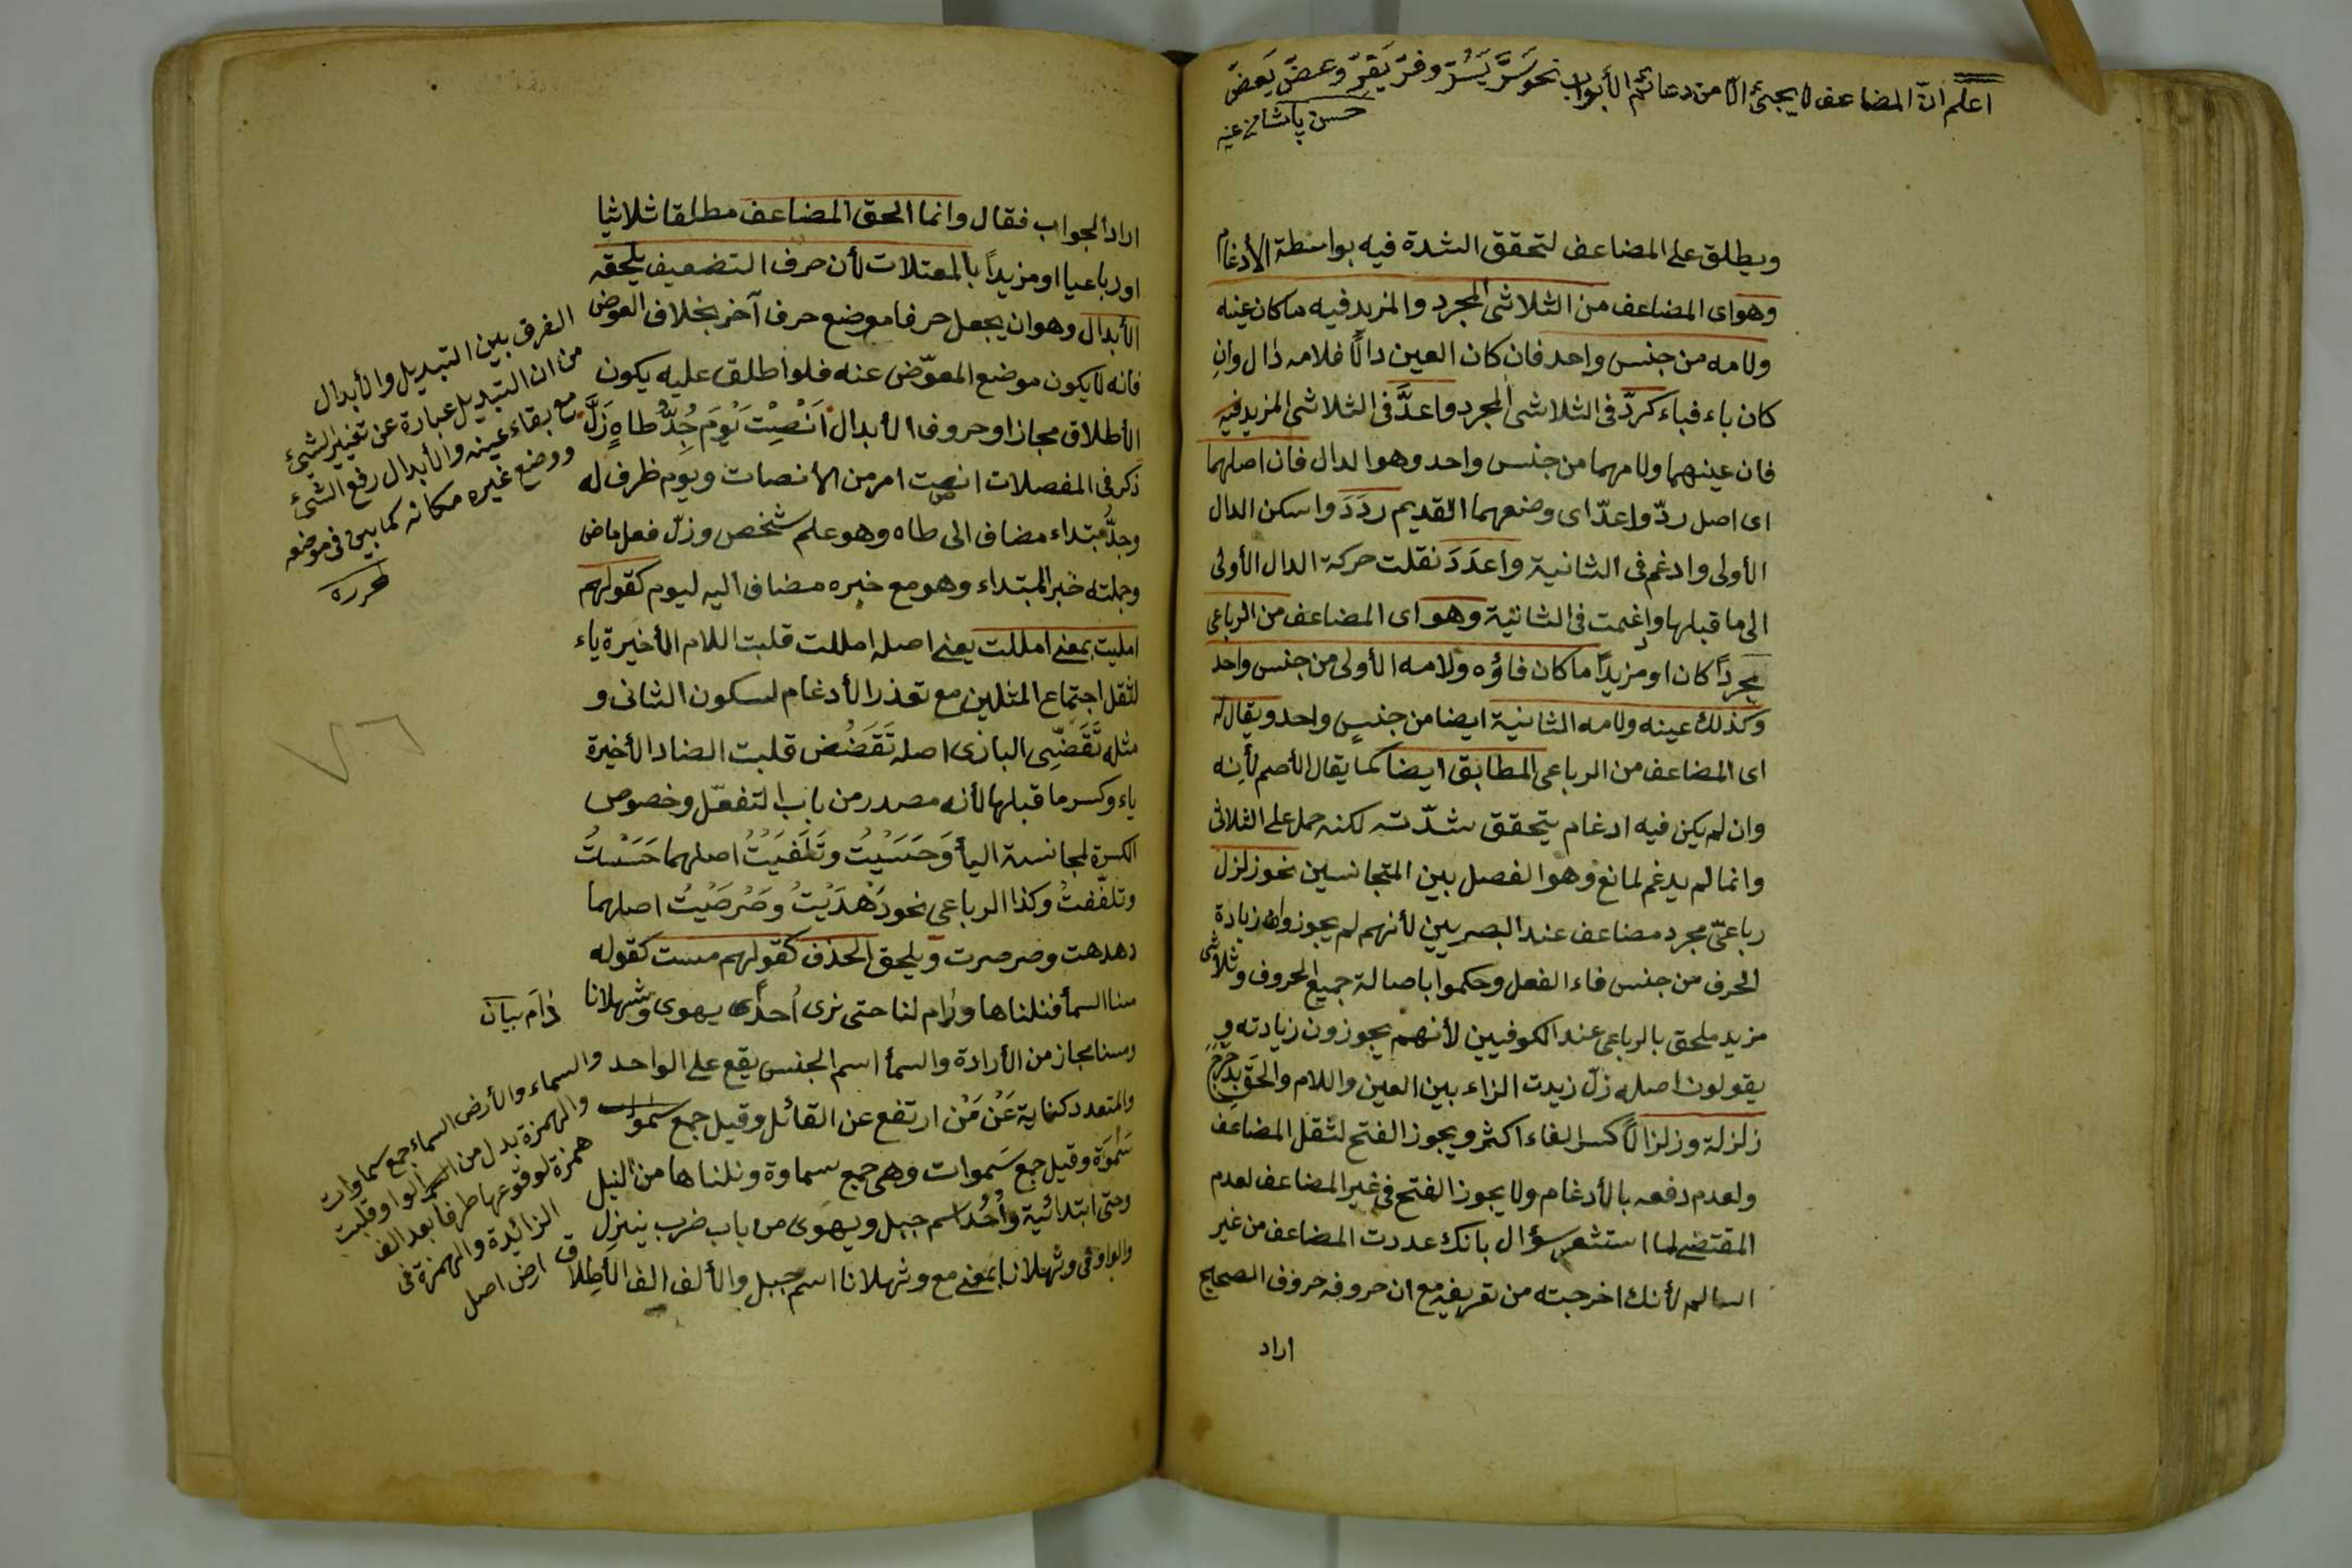 اعلم انّ المضاعف لا يجئ الّا من دعائم الأبواب نحو سَرَّ يَسُرّ وفرّ يَفِرّ وعضّ يَعَضّ
حسن پاشا
ويطلق على المضاعف لتحقق الشدة فيه بواسطة الأدغام
وهو اى المضاعف من الثلاثى المجرد والمزيد فيه ما كان عينه
ولامه من جنس واحد فان كان العين دالًا فلامه دال وان
كان باء فباء كردّ فى الثلاثى المجرد واعدَّ فى الثلاثى المزيد فيه
فان عينهما ولامهما من جنس واحد وهو الدال فان اصلهما
اى اصل ردّ واعدّ اى وضعهما القديم رَدَدَ واسكن الدال
الأولى وادغم فى الثانية واَعدَدَ نقلت حركة الدال الأولى
الى ما قبلها وادغمت فى الثانية وهو اى المضاعف من الرباعى
مجردًا كان او مزيدًا ما كان فاؤه ولامه الأولى من جنس واحد
وكذلك عينه ولامه الثانية ايضا من جنس واحد ويقال له
اى المضاعف من الرباعى المطابق ايضا كما يقال الأصم لأنه
وان لم يكن فيه ادغام يتحقق شدّته لكنه حمل على الثلاثى
وانما لم يدغم لمانع وهو الفصل بين المتجانسين نحو زلزل
رباعىّ مجرد مضاعف عند البصريين لأنهم لم يجوزوا زيادة
الحرف من جنس فاء الفعل وحكموا باصالة جميع الحروف وثلاثى
مزيد ملحق بالرباعى عند الكوفيين لأنهم يجوزون زيادته و
يقولون اصله زلّ زيدت الزاء بين العين واللام والحق بدحرج
زلزلة وزلزالًا كسر الفاء اكثر ويجوز الفتح لثقل المضاعف
ولعدم دفعه بالأدغام ولا يجوز الفتح فى غير المضاعف لعدم
المقتضى لما استشعر سؤال بانك عددت المضاعف من غير
السالم لأنك اخرجته من تعريفه مع ان حروفه حروف الصحيح
اراد
اراد الجواب فقال وانما الحق المضاعف مطلقا ثلاثيا
او رباعيا او مزيدًا بالمعتلات لأن حرف التضعيف يلحقه
الأبدال وهو ان يجعل حرفا موضع حرف آخر بخلاف العوض
فانه لا يكون موضع المعوّض عنه فلو اطلق عليه يكون
الأطلاق مجازا وحروف الأبدال اَنْصِتْ يَوْمَ جُدُّ طاهٍ زَلَّ
ذكر فى المفصلات انصت امر من الأنصات ويوم ظرف له
وجدُّ مبتداء مضاف الى طاه وهو علم شخص وزلّ فعل ماض
وجملته خبر المبتداء وهو مع خبره مضاف اليه ليوم كقولهم
امليت بمعنى امللت يعنى اصله امللت قلبت اللام الأخيرة ياء
لثقل اجتماع المثلين مع تعذر الأدغام لسكون الثانى و
مثله تَقَضِّى البازى اصله تَقَضُّض قلبت الضاد الأخيرة
ياء وكسر ما قبلها لأنه مصدر من باب التفعّل وخصوص
الكسرة لمجانسة اليأ وَحَسَيْتُ وتَلَفَّيْتُ اصلهما حَسَسْتُ
وتلفّفتُ وكذا الرباعى نحو دَهْدَيْتُ وصَرْصَيْتُ اصلهما
دهدهت وصرصرت ويلحق الحذف كقولهم مست كقوله
مسنا السمأ فنلناها ورام لنا حتى نرى اُحدًا يهوى وثهلانا
ومسنا مجاز من الأرادة والسمأ اسم الجنس يقع على الواحد
والمتعدد كناية عَنْ مَنْ ارتفع عن القائل وقيل جمع سموات
سَمْوَة وقيل جمع سَموات وهى جمع سماوة ونلناها من النيل
وحتى ابتدائية واُحُد اسم جبل ويهوى من باب ضرب ينزل
والواو فى وثهلانا بمعنى مع وثهلانا اسم جبل والألف الف الأطلاق
الفرق بين التبديل والأبدال
من ان التبديل عبارة عن تغيير الشئ
مع بقاء عينه والأبدال رفع الشئ
ووضع غيره مكانه كما بين فى موضعه
لمحرره
والسماء والأرض السماء جمع سماوات
والهمزة بدل من الواو قلبت
همزة لوقوعها طرفا بعد الف
الزائدة والهمزة فى
ارض اصل